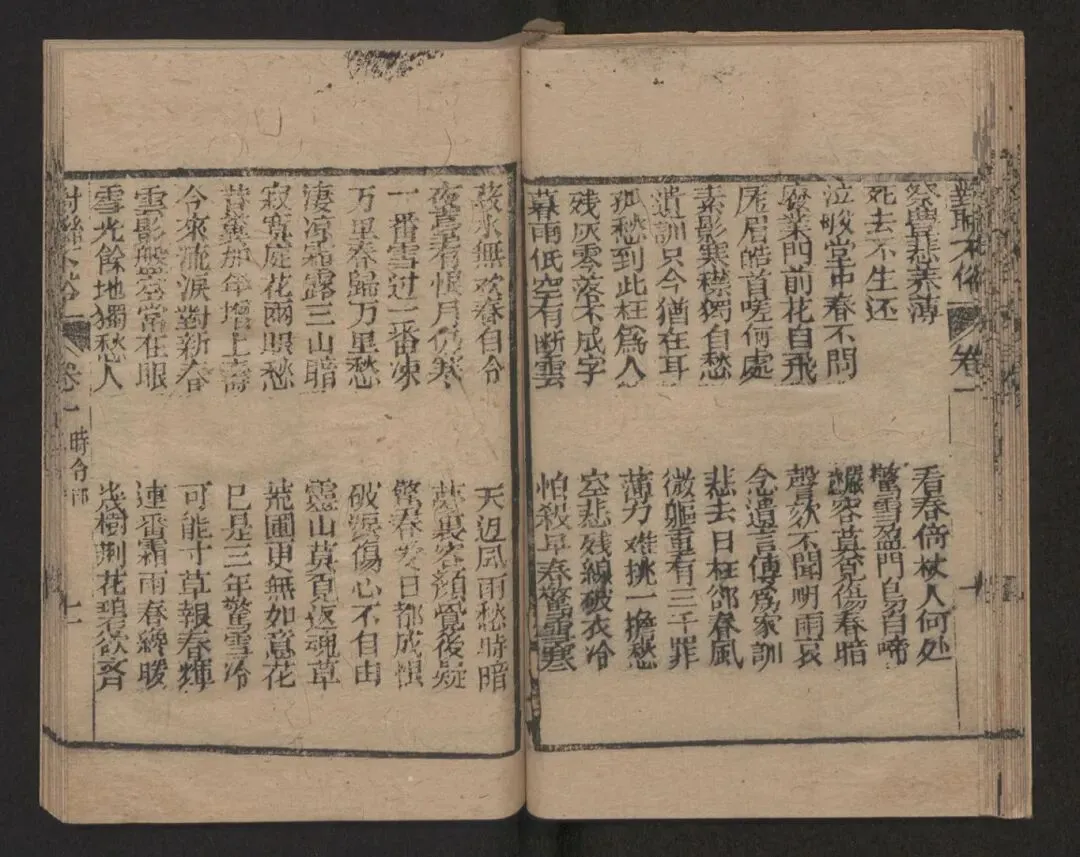 對聯不俗
卷一
十
祭豊悲养薄
死去不生还
泣
堂中春不問
門前花自飛
眉皓首嗟何處
素影寒襟獨自愁
遺訓只今猶在耳
孤愁到此枉爲人
残灰零落不成字
暮雨低空有断雲
看春倚杖人何处
驚雪盈門鳥自啼
容莫見傷春暗
聲欬不聞明雨哀
念遺言傳爲家訓
悲去日枉郤春風
微軀重有三千罪
薄力难挑一擔愁
空悲残線破衣冷
怕殺早春驚雪寒
水無欢春自令
夜臺有恨月仍寒
一番雪过一番凍
万里春歸万里愁
淒凉霜露三山暗
寂寞庭花兩眼愁
昔
那年
上
今來流淚對新春
雲影盤空常在眼
雪光餘地獨愁人
天边風雨愁時暗
夢裏容顏覺後疑
驚春愛日都成恨
破淚傷心不自由
靈山莫覓返魂草
花圃更無如意花
已是三年驚雪冷
可能寸草報春輝
連番霜雨春纔暖
幾樹荆花碧
對聯不俗
卷一
時令部
十一